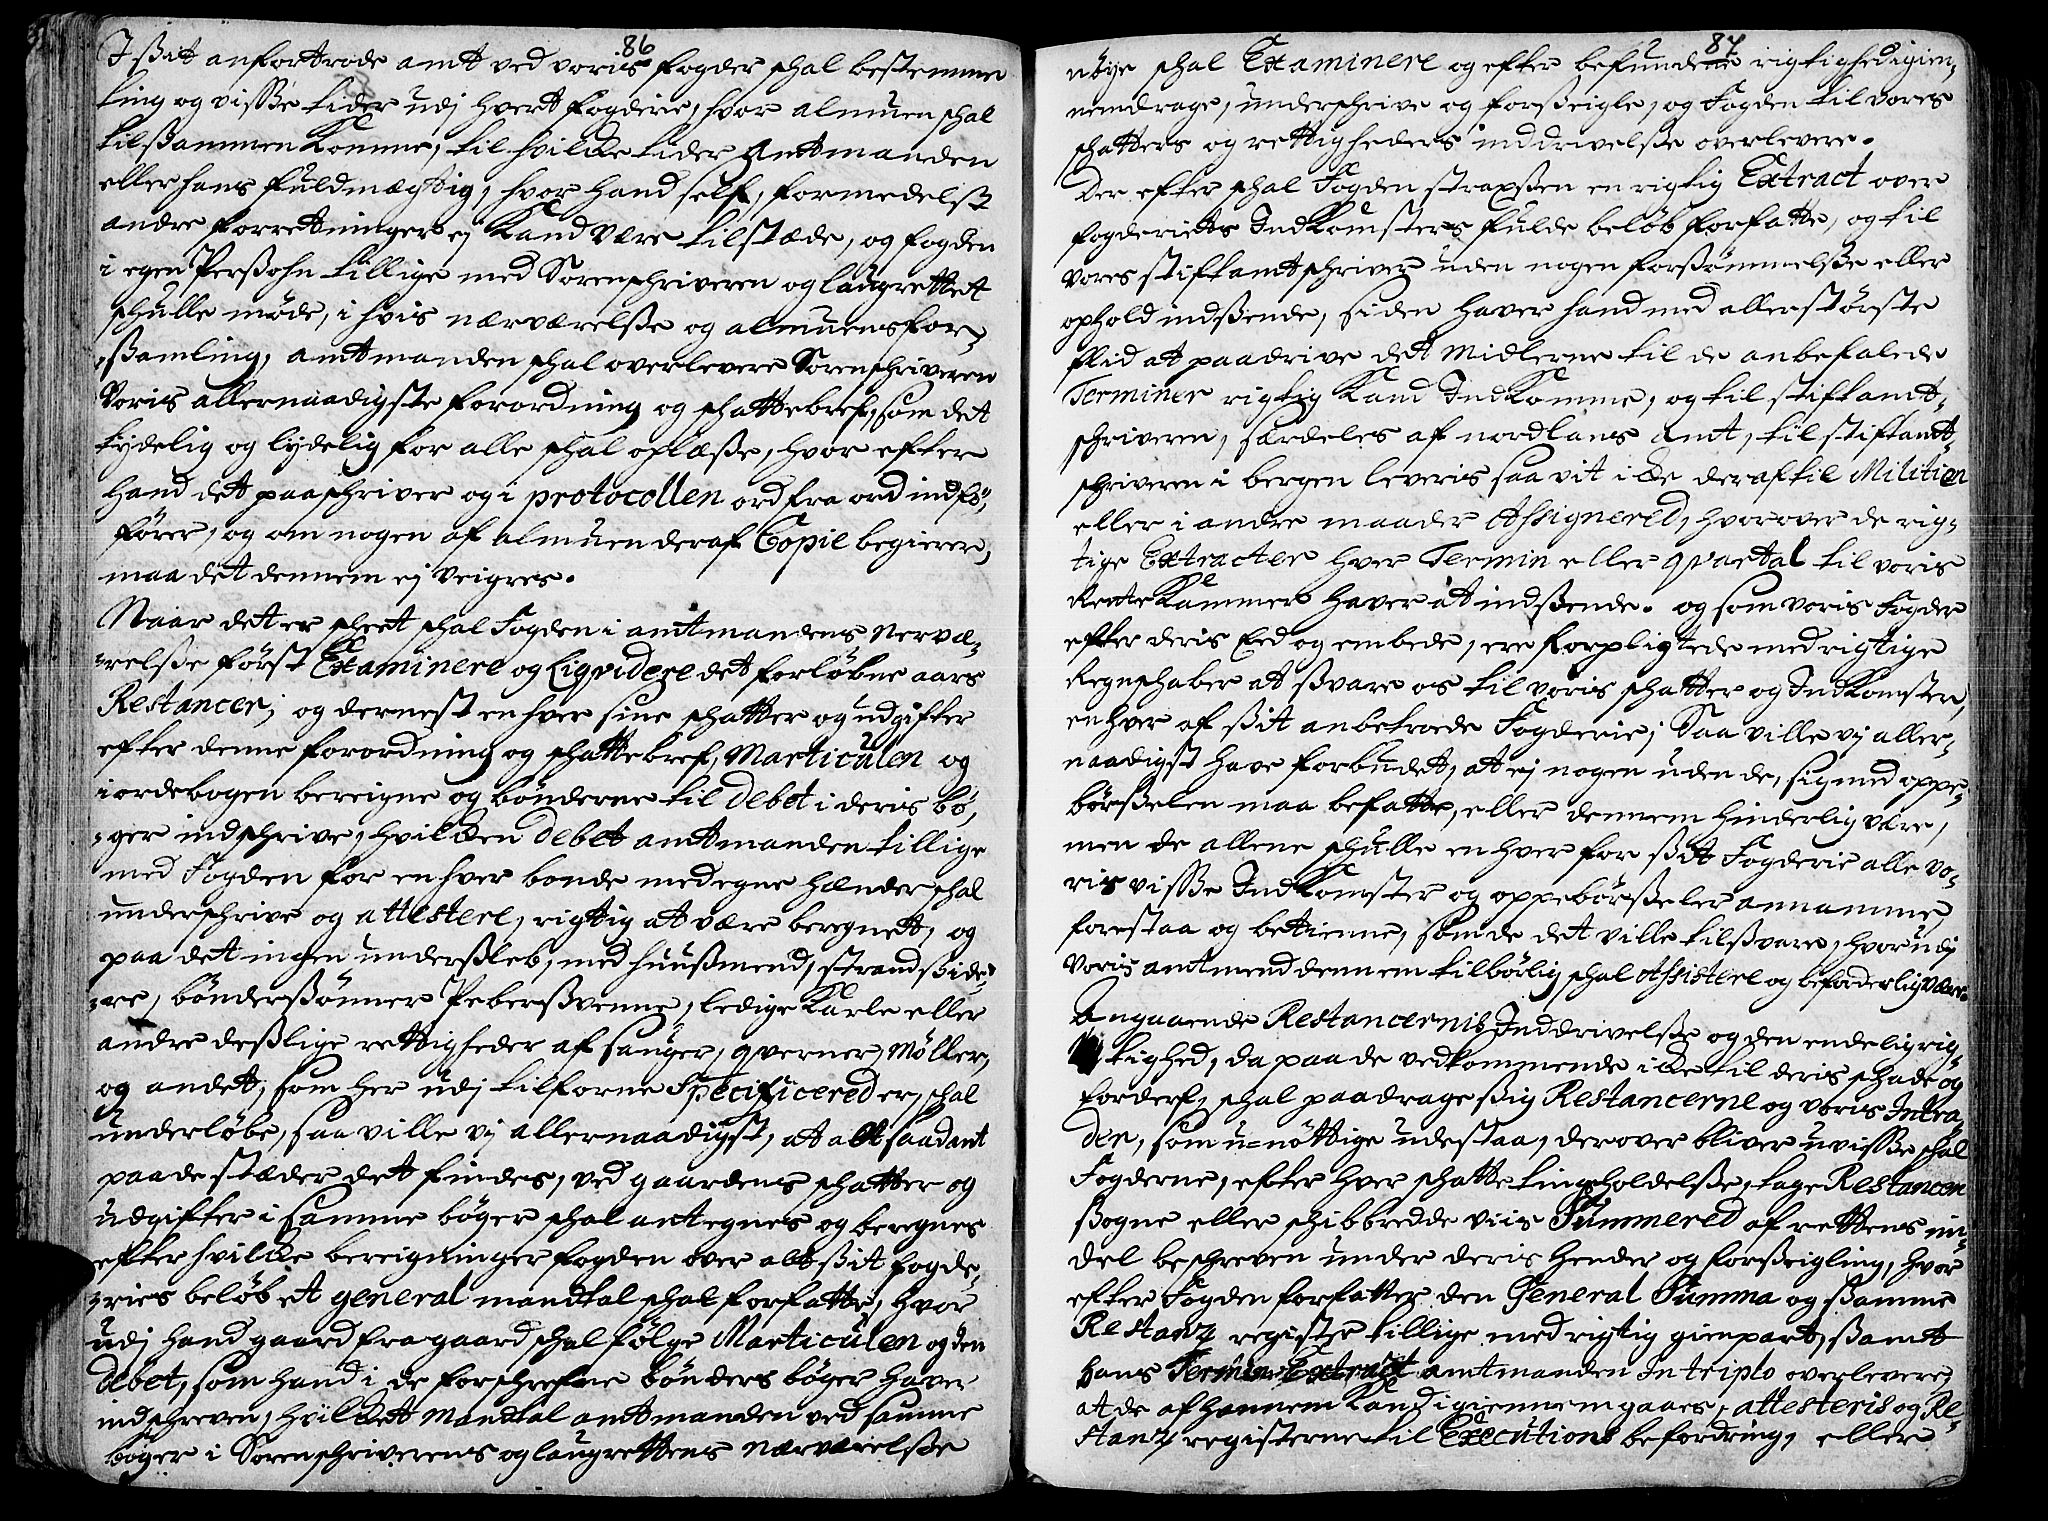 86
I ßit anfortrode amt ved voris fogder schal bestemme
ting og visße tider udj hvert fogderie, hvor almuen schal
tilsammen Komme, til hvilcke tider Amtmanden
eller hans fuldmægtig, hvor hand self, formedelst
andre forretninger ej Kand være tilstæde, og fogden
i egen Perßohn tillige med Sorenschriveren og laugrettet
schulle møde, i hvis nærværelße og almuens for¬
ßamling, amtmanden schal overlevere Sorenschriveren
Voris allernaadigste forordning og schattebref, som det
tydelig og lydelig for alle schal oplæße, hvor efter
hand det paaschriver og i protocollen ord fra ord indfø¬
fører, og om nogen af almuen deraf Copie begierer,
maa det dennem ej veigres.
Naar det er scheet schal Fogden i amtmandens nervæ¬
relße først Examinere og Liqvidere det forløbne aars
Restancer, og dernest en hver sine schatter og udgifter
efter denne forordning og schattebref, Marticulen og
iordebogen bereigne og bønderne til Debet i deris bø¬
ger indschrive, hvilcken Debet amtmanden tillige
med Fogden for en hver bonde med egne hænder schal
underschrive og attestere, rigtig at være beregnet, og
paa det ingen underßleb, med huußmend, strandßide¬
re, bønderßønner Peberßvenne, ledige Karle eller
andre deßlige rettigheder af sauger, qverner, Møller,
og andet, som her udj tilforne Specificered er, schal
underløbe, saa ville vj allernaadigst, at alt saadant
paa de stæder det findes, ved gaardens schatter og
udgifter i samme bøger schal antegnes og beregnes
efter hvilcke bereigninger fogden over alt ßit fogde¬
ries beløb et general mandtal schal forfatte, hvor
udj hand gaard fra gaard schal følge Marticulen og den
Debet, som hand i de forschrefne bønders bøger haver
indschreven, hvilcket Mandtal amtmanden ved samme
bøger i Sorenschriverens og laugrettens nærværelße
87
nøye schal Examinere og efter befundene rigtighed igien¬
nemdrage, underschrive og forßeigle, og Fogden til vores
schatters og rettigheders inddrivelße overlevere.
Der efter schal Fogden strapßen en rigtig Extract over
fogderiets Indkomsters fulde beløb forfatte, og til
vores stiftamtschriver uden nogen forßømmelße eller
ophold indßende, siden haver hand med allerstørste
flid at paadrive det midlerne til de anbefalede
Terminer rigtig Kand Indkomme, og til stiftamt¬
schriveren, særdeles af nordlans amt, til stiftamt¬
schriveren i bergen leveris saa vit icke deraf til Militien
eller i andre maader Assignered, hvorover de rig¬
tige Extracter hver Termin eller qvartal til voris
RenteKammer haver at indßende. og som voris Fogder
efter deris Eed og embede, ere forpligtede med rigtige
Regnschaber at ßvare os til voris schatter og Indkomster,
en hver af ßit anbetroede Fogderie; Saa ville vj aller¬
naadigst have forbudet, at ej nogen uden de, sig med oppe¬
børßelen maa befatte, eller dennem hinderlig være,
men de allene schulle en hver for ßit Fogderie alle vo¬
ris visße Indkomster og oppebørßeler annamme,
forestaa og betienne, som de det ville tilßvare, hvorudj
voris amtmend dennem tilbørlig schal Assistere og beforderlig være.
Angaaende Restancernis Inddrivelße og den endelig rig¬
tighed, da paa de vedkommende icke til deris schade og
forderf, schal paadrage ßig Restancerne og voris Intra¬
der, som u-nøttige udestaa, derover bliver uvisße schal
Fogderne, efter hver schatte tings holdelße, tage Restancen
ßogne eller schibbredde viis Summered af rettens mi¬
del beschreven under deris hender og forßeigling, hvor
efter Fogden forfatter den General Summa og ßamme
Restanz register tillige med rigtig gienpart, ßamt
hans Termin Extract amtmanden In triplo overlevere,
at de af hannem Kand igiennemgaaes, attesteris og Re¬
stanz registerne til Executions befordring, eller